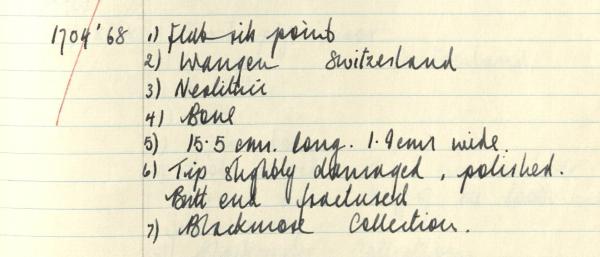 1704'68 1) Flat rib point
2) Wangen Switzerland
3) Neolithic
4) Bone
5) 15.5 cms. long. 1.9 cms wide.
6) Tip slightly damaged, polished.
Butt end fractured
7) Blackmore Collection.